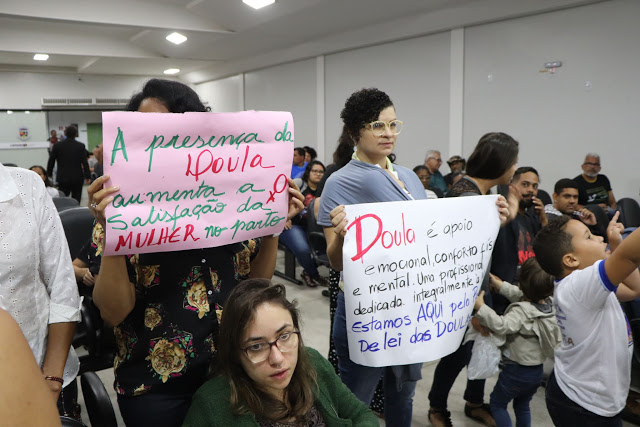 A presença da
Doula
aumenta a
Satisfação da
MULHER no parto
Doula é apoio
emocional, conforto fís
e mental. Uma profissional
dedicada integralmente
Estamos AQUI pelo
De lei das DOULA